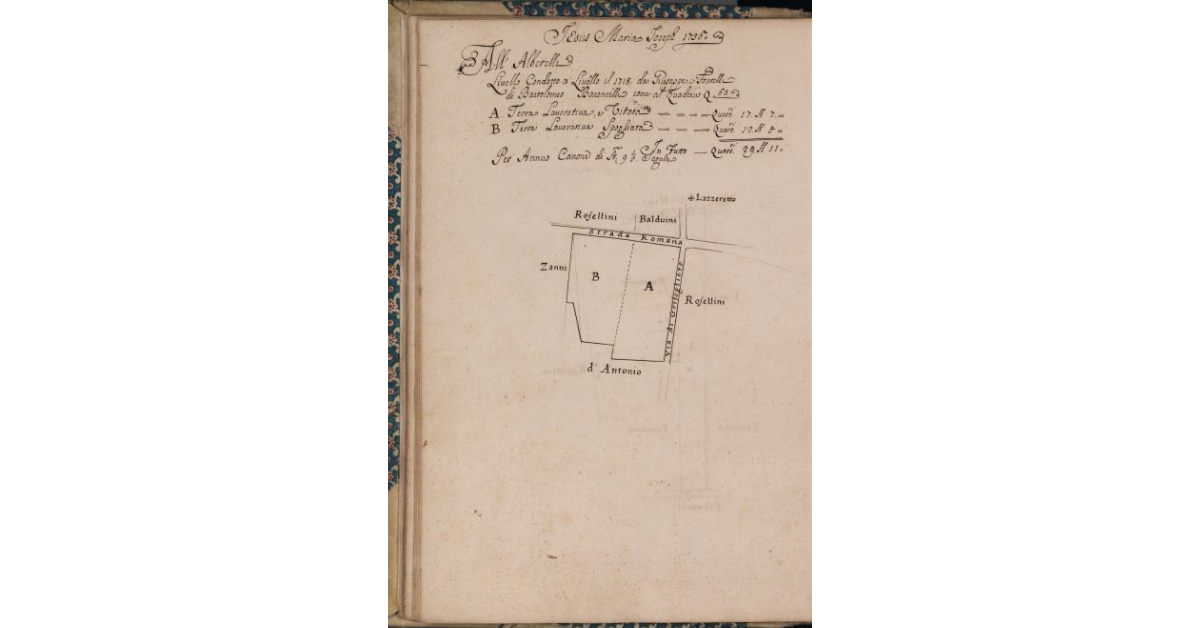 Jesus Maria Joseph 1736
All' Alberelli
Livello Condotto a Livello il 1718 da Giuseppe, e Fratelli
di Bartolomeo Baroncelli come al Quadrio Q
A Terra Lavorativa, e Vitata — — — Quar. 17. H 7.—
B Terra Lavorativa Spogliata — — — Quar.
In Tutto — Quar. 29. H 11.
Per Annuo Canone di
Segale
+ Lazzeretto
Rosellini
Balduini
Strada Romana
Zanni
B
A
Via di Orifoglioro
Rosellini
d' Antonio